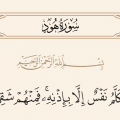 سُورَةُ هُودٍ
بِسْمِ اللَّهِ الرَّحْمَٰنِ الرَّحِيمِ
تَكَلَّمُ نَفْسٌ إِلَّا بِإِذْنِهِ ۚ فَمِنْهُمْ شَقِيٌّ